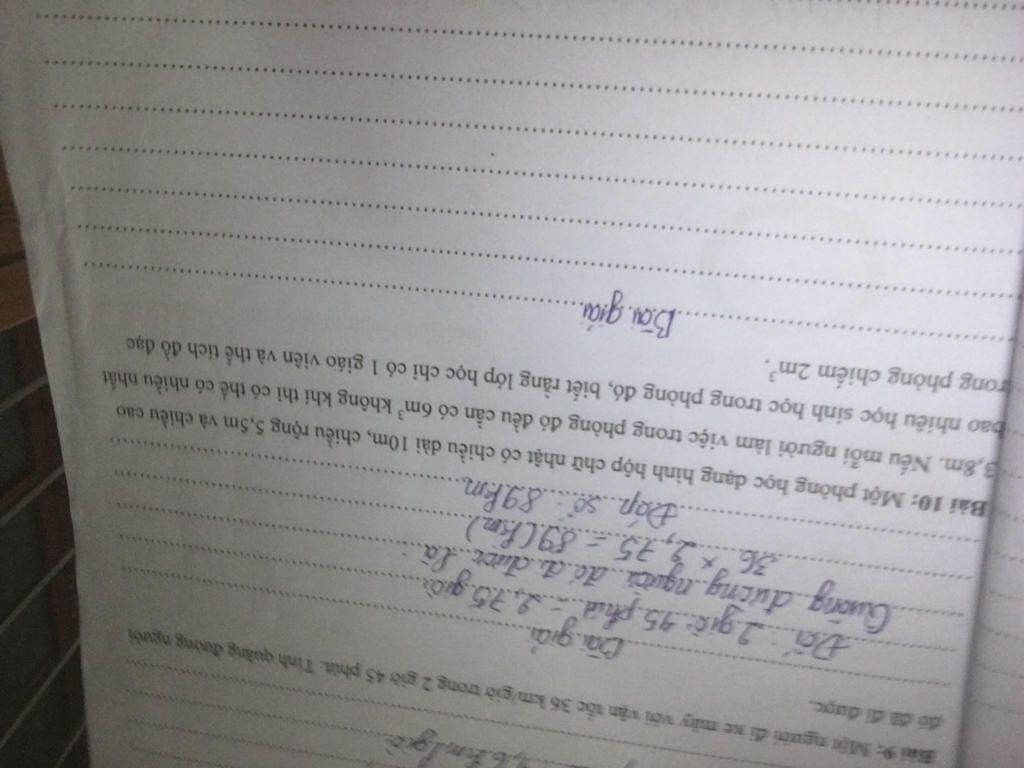 ,6 km/giờ.
Bài 9: Một người đi xe máy với vận tốc 36 km/giờ trong 2 giờ 45 phút. Tính quãng đường người
đó đã đi được.
Bài giải
Đổi: 2 giờ 45 phút = 2,75 giờ
Quãng đường người đó đi được là:
36 × 2,75 = 89 (km)
Đáp số: 89 km
Bài 10: Một phòng học dạng hình hộp chữ nhật có chiều dài 10m, chiều rộng 5,5m và chiều cao
3,8m. Nếu mỗi người làm việc trong phòng đó đều cần có 6m³ không khí thì có thể có nhiều nhất
bao nhiêu học sinh học trong phòng đó, biết rằng lớp học chỉ có 1 giáo viên và thể tích đồ đạc
trong phòng chiếm 2m³.
Bài giải